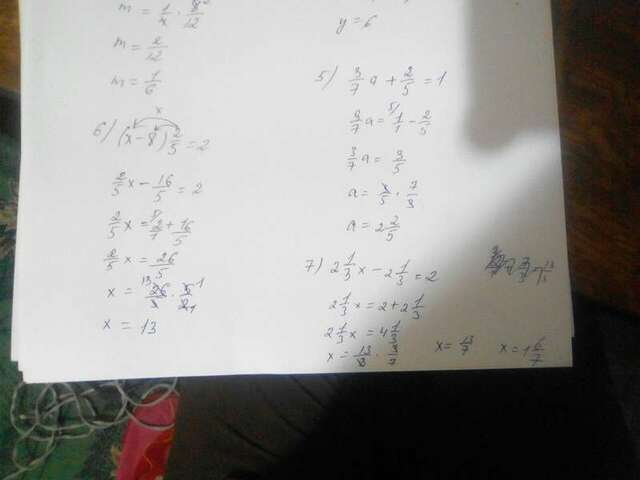 m = 1/4 · 8/12
m = 2/12
m = 1/6
6) (x - 8) 2/5 = 2
2/5 x - 16/5 = 2
2/5 x = 2/1 + 16/5
2/5 x = 26/5
x = 26/5 · 5/2
x = 13
y = 6
5) 3/7 a + 2/5 = 1
3/7 a = 1/1 - 2/5
3/7 a = 3/5
a = 3/5 · 7/3
a = 2 2/5
7) 2 1/3 x - 2 1/3 = 2
2 1/3 x = 2 + 2 1/3
2 1/3 x = 4 1/3
x = 13/3 · 3/7 x = 13/7 x = 1 6/7